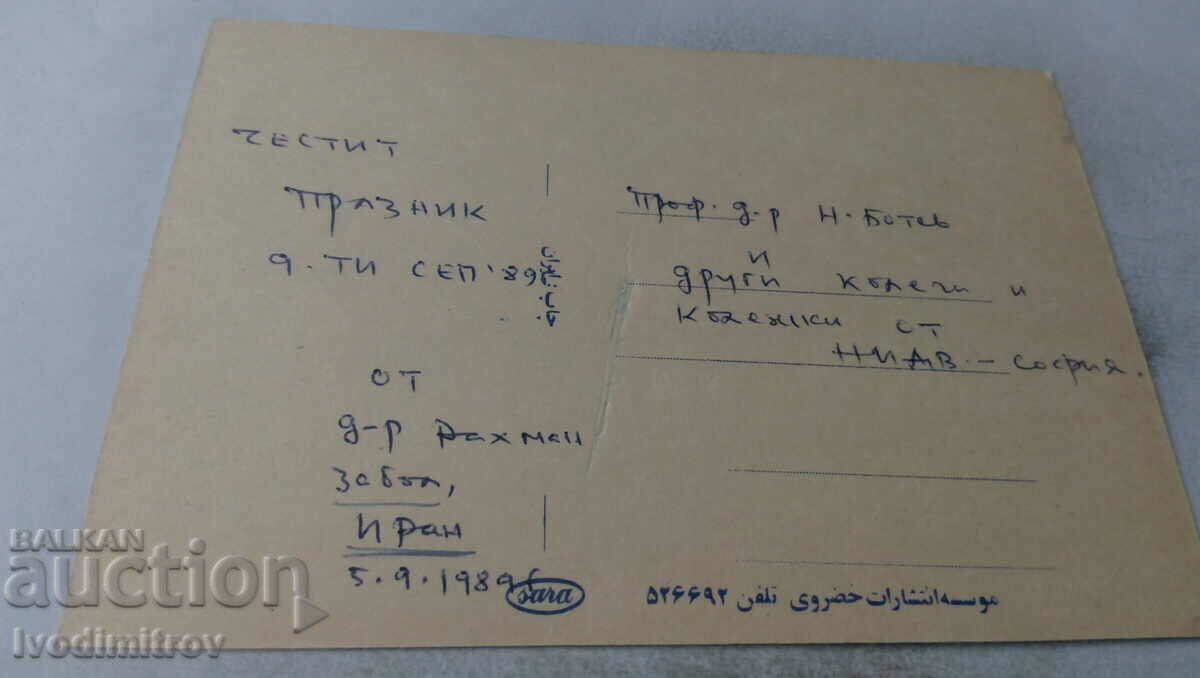 ЧЕСТИТ
ПРАЗНИК
9.ТИ СЕП'89
ОТ
д-р Рахман
Забол,
Иран
5.9.1989
Проф. д-р Н. Ботев
и
други колеги и
колежки от
НИДВ - София.
sara
موسسه انتشارات خضروی تلفن ۵۲۶۶۹۲
BALKAN
auction
Ivodimitrov